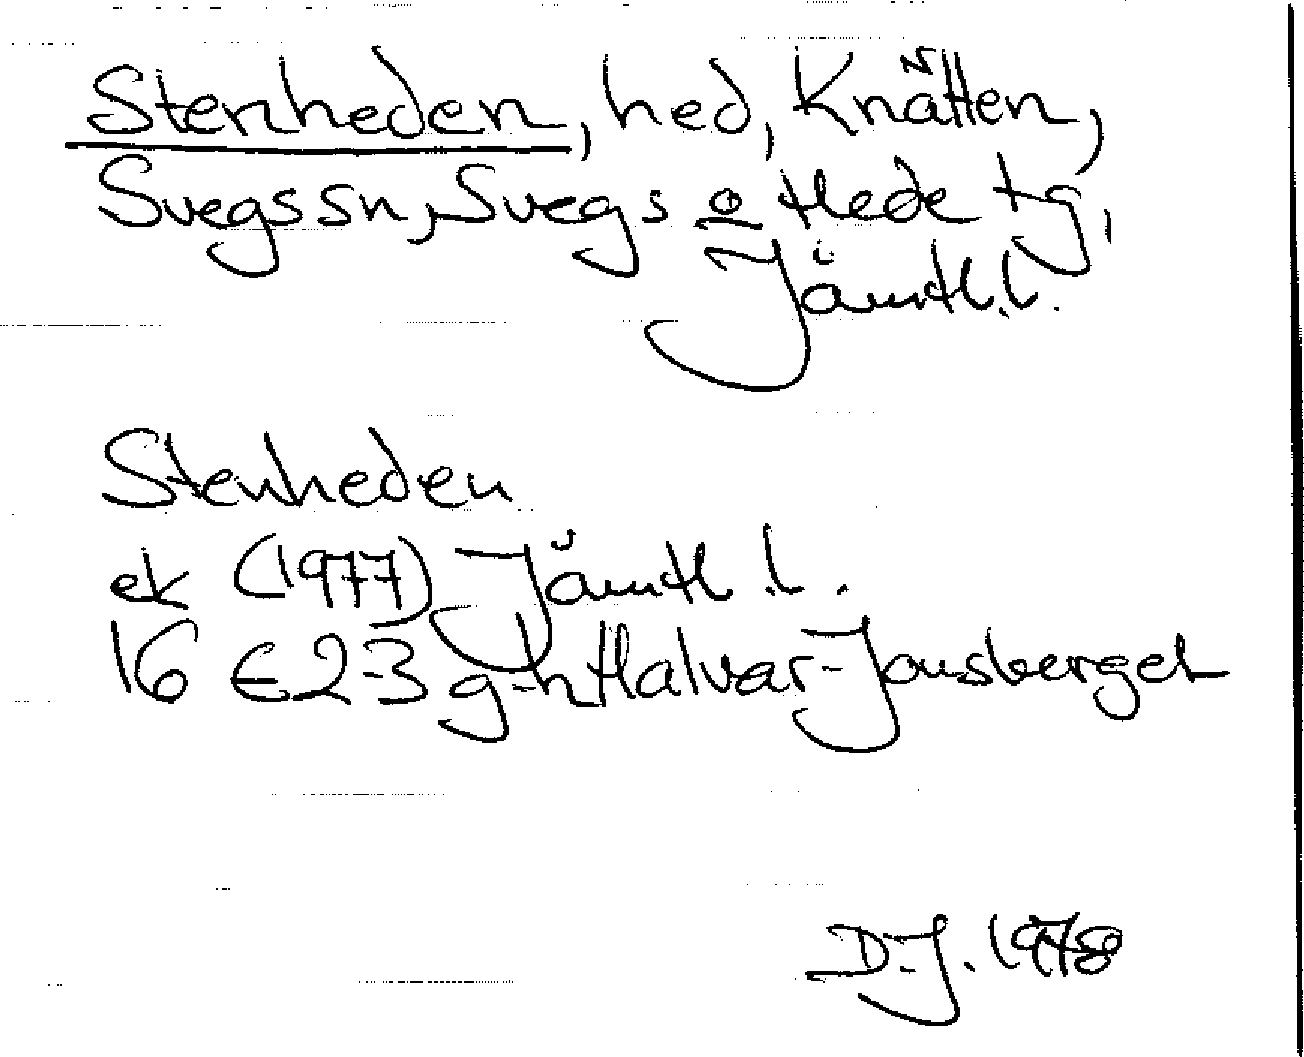 Stenheden, hed, Knätten,
Svegs sn, Svegs o Hede tg,
Jämtl.l.
Stenheden
ek (1977) Jämtl.l.
16 E 2-3 g-h Halvar-Jonsberget
D-J. 1978